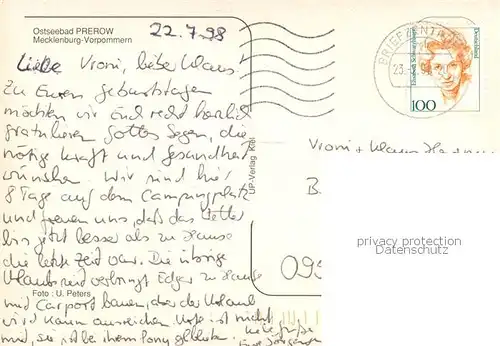 Ostseebad PREROW
Mecklenburg-Vorpommern
22.7.98
Liebe Vroni, lieber Klaus!
Zu Euren Geburtstagen
möchten wir Euch recht herzlich
gratulieren Gottes Segen, die
nötige Kraft und Gesundheit
wünschen. Wir sind hier
8 Tage auf dem Campingplatz
und freuen uns, daß das Wetter
bis jetzt besser als zu Hause
die letzte Zeit war. Die übrige
Urlaubszeit verbringt Edgar zu Hause
Foto : U. Peters
mit Carport bauen, aber der Urlaub
wird kaum ausreichen. ist nicht
mit, sie ist bei ihrem Pony geblieben.
Liebe Grüße
UP-Verlag Kiel
BRIEFZENTRUM
23.
Deutschland
100
Vroni + Klaus
B
privacy protection
DSGVO
095